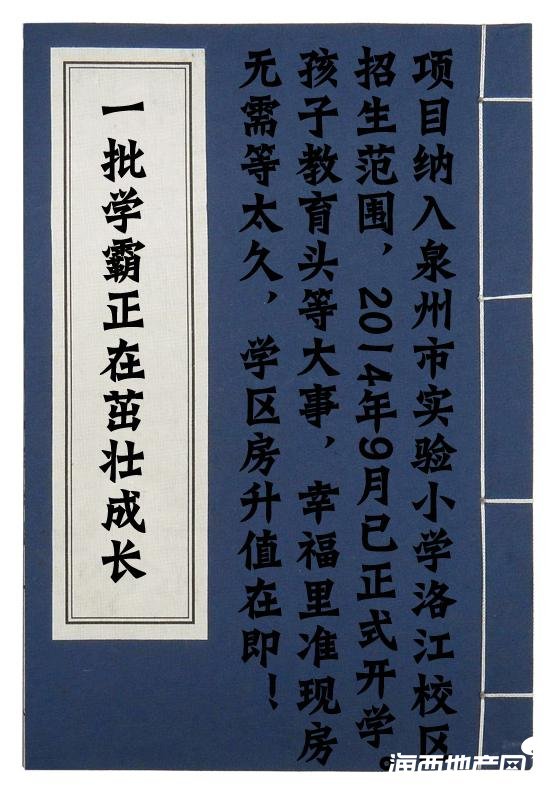 项目纳入泉州市实验小学洛江校区
招生范围，2014年9月已正式开学。
孩子教育头等大事，幸福里准现房
无需等太久，学区房升值在即！
一批学霸正在茁壮成长
海西地产网